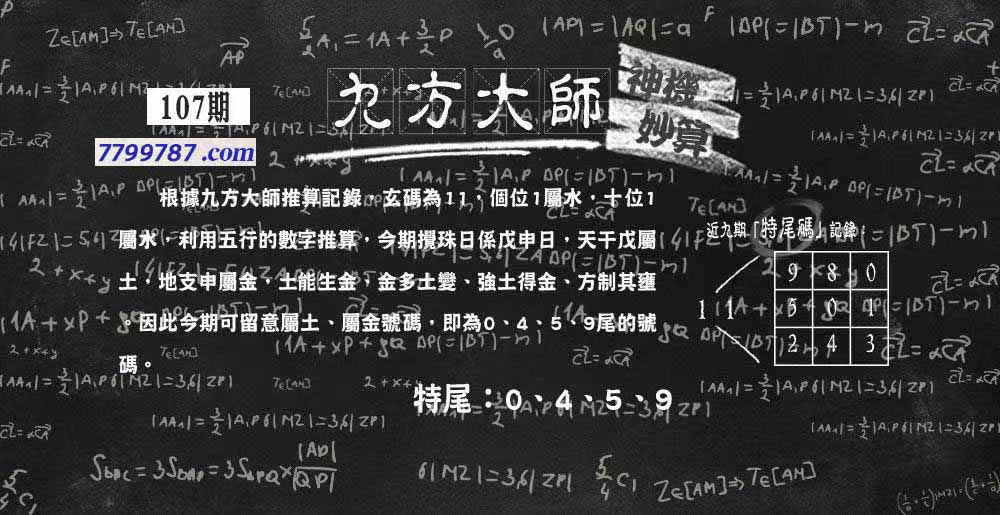 九方大師
神機
妙算
107期
7799787 .com
根據九方大師推算記錄，玄碼為11，個位1屬水，十位1
屬水，利用五行的數字推算，今期攪珠日係戊申日，天干戊屬
土，地支申屬金，土能生金，金多土變、強土得金、方制其壅
。因此今期可留意屬土、屬金號碼，即為0、4、5、9尾的號
碼。
特尾：0、4、5、9
近九期「特尾碼」記錄：
11
9 8 0
5 0 1
2 4 3